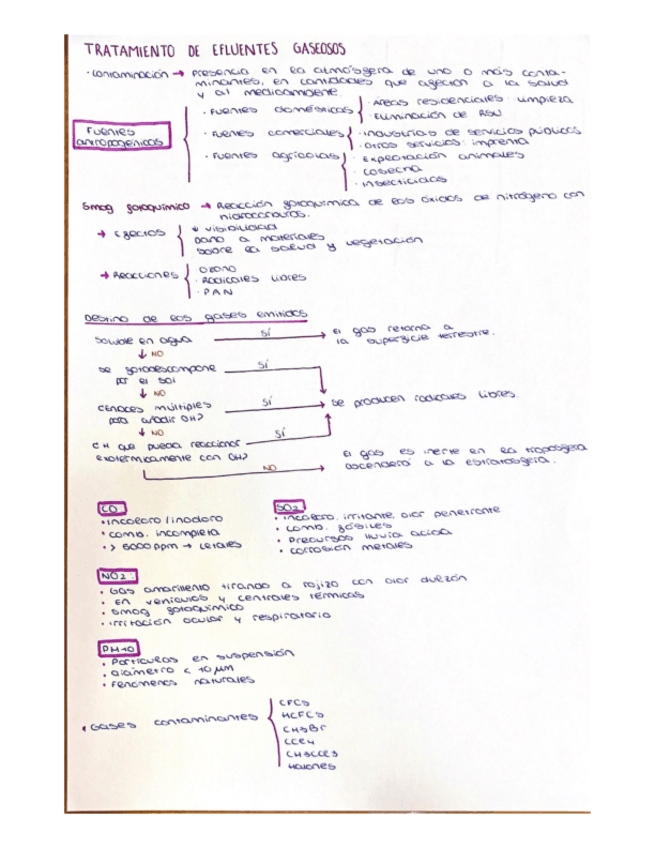 TRATAMIENTO DE EFLUENTES GASEOSOS
· Contaminación → presencia en la atmósfera de uno o más conta-
minantes, en cantidades que afectan a la salud
y al medioambiente.
Fuentes antropogénicas
· Fuentes domésticas
· Áreas residenciales: limpieza
· Eliminación de RSU
· Fuentes comerciales
· Industrias de servicios públicos
· Otros servicios: imprenta
· Fuentes agrícolas
· Explotación animales
· Cosecha
· Insecticidas
Smog fotoquímico → Reacción fotoquímica de los óxidos de nitrógeno con
hidrocarburos.
→ Efectos
↓ visibilidad
Daño a materiales
Sobre la salud y vegetación
→ Reacciones
Ozono
· Radicales libres
· PAN
Destino de los gases emitidos
Soluble en agua
SÍ
El gas retorna a
la superficie terrestre.
↓ NO
Se fotodescompone
por el sol
SÍ
↓ NO
Enlaces múltiples
para añadir OH?
SÍ
Se producen radicales libres.
↓ NO
CH que pueda reaccionar
exotérmicamente con OH?
SÍ
NO
El gas es inerte en la troposfera
ascenderá a la estratosfera.
CO:
• Incoloro / inodoro
• Comb. incompleta
• > 5000 ppm → Letales
SO2:
• Incoloro, irritante, olor penetrante
• Comb. fósiles
• Precursos lluvia ácida
• Corrosión metales
NO2:
• Gas amarillento tirando a rojizo con olor dulzón
• En vehículos y centrales térmicas
• Smog fotoquímico
• Irritación ocular y respiratorio
PM-10
• Partículas en suspensión
• Diámetro < 10 μm
• Fenómenos naturales
• Gases contaminantes
CFCs
HCFCs
CH3Br
CCl4
CH3CCl3
Halones